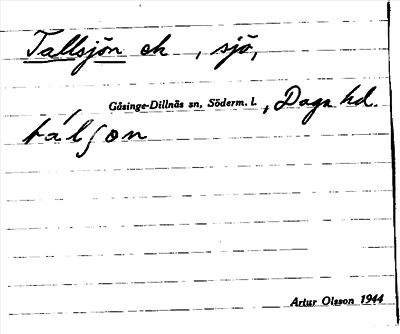 Tallsjön ek , sjö,
Gåsinge-Dillnäs sn, Söderm. l. , Daga hd.
tálʃon
Artur Olsson 1944